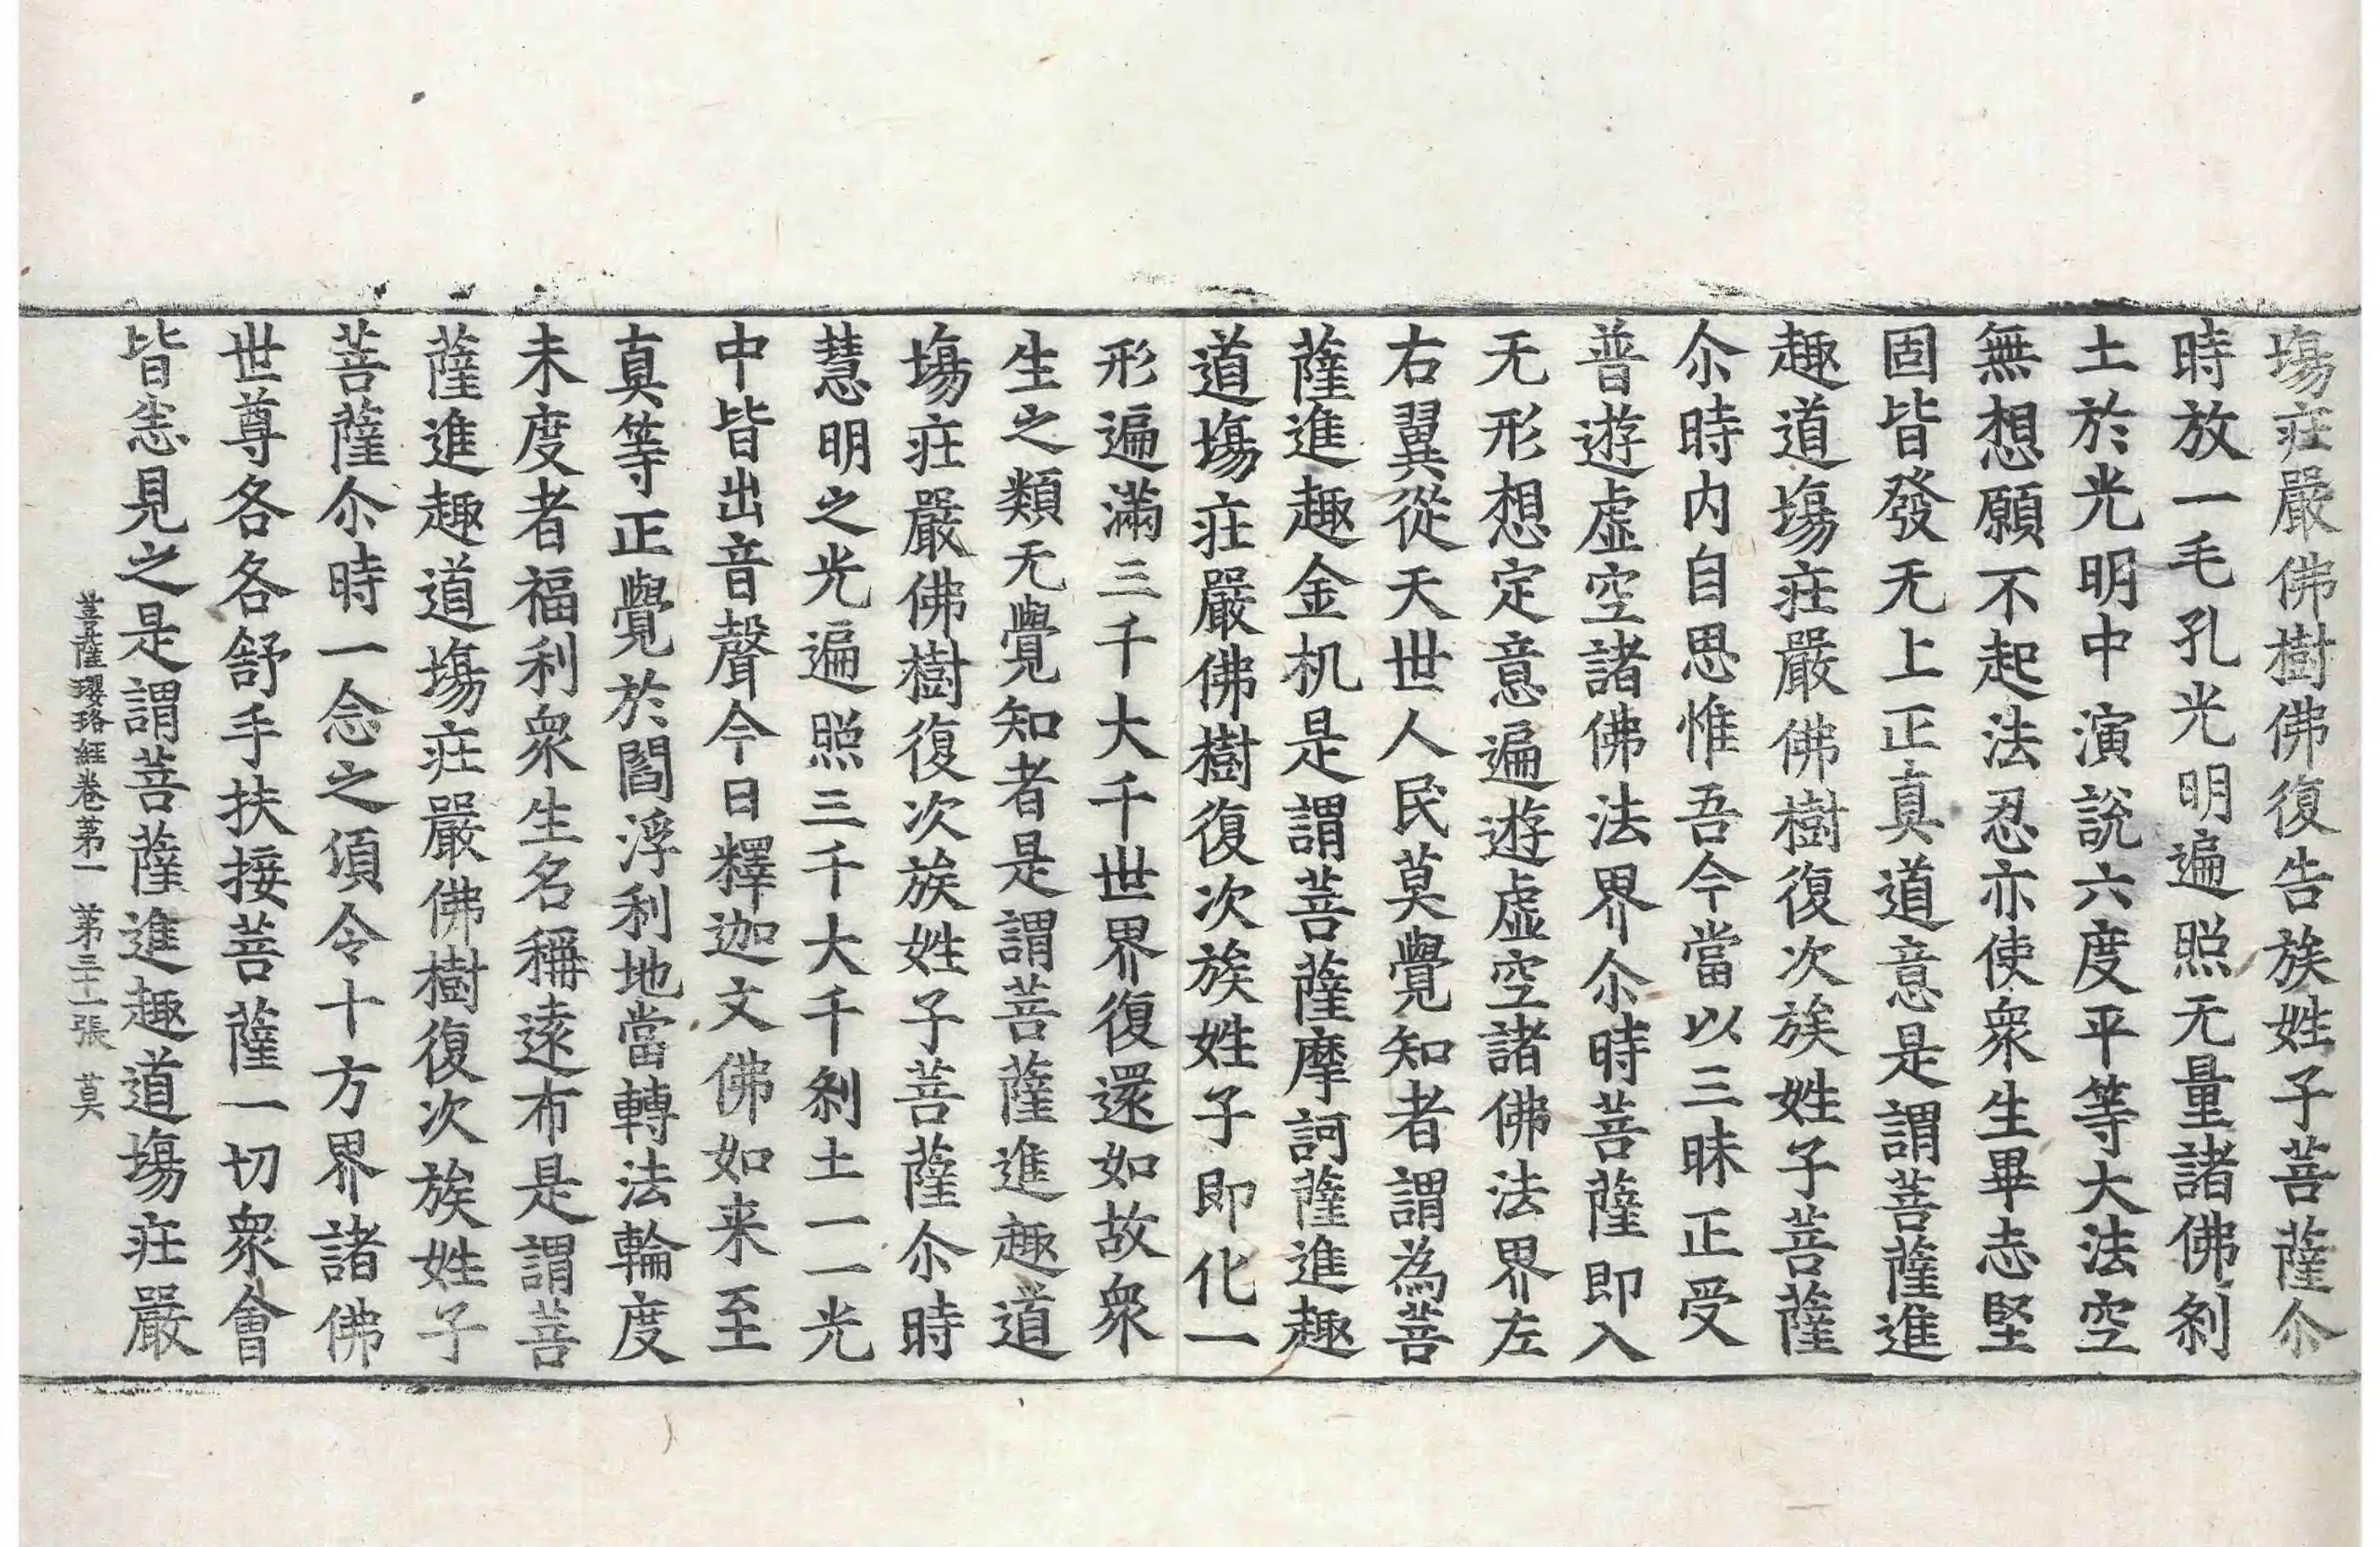 塲莊嚴佛樹佛復告族姓子菩薩尒
時放一毛孔光明遍照无量諸佛刹
土於光明中演說六度平等大法空
無想願不起法忍亦使衆生畢志堅
固皆發无上正真道意是謂菩薩進
趣道塲莊嚴佛樹復次族姓子菩薩
尒時内自思惟吾今當以三昧正受
普遊虛空諸佛法界尒時菩薩即入
无形想定意遍遊虛空諸佛法界左
右翼從天世人民莫覺知者謂為菩
薩進趣金机是謂菩薩摩訶薩進趣
道塲莊嚴佛樹復次族姓子即化一
形遍滿三千大千世界復還如故衆
生之類无覺知者是謂菩薩進趣道
塲莊嚴佛樹復次族姓子菩薩尒時
慧明之光遍照三千大千刹土一一光
中皆出音聲今日釋迦文佛如来至
真等正覺於閻浮利地當轉法輪度
未度者福利衆生名稱遠布是謂菩
薩進趣道塲莊嚴佛樹復次族姓子
菩薩尒時一念之湏令十方界諸佛
世尊各各舒手扶接菩薩一切衆會
皆悉見之是謂菩薩進趣道塲莊嚴
菩薩瓔珞經卷第一 第三十一張 莫